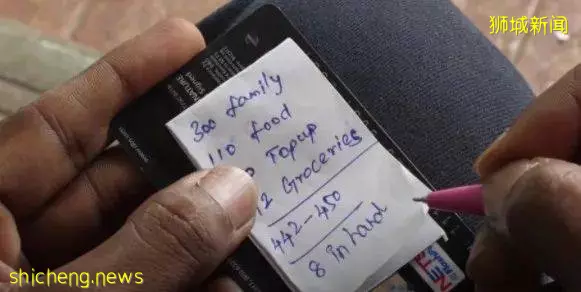 狮城新闻
300 family
110 food
Topup
12 Groceries
442-450
8 in hand
NATURE
Signed
NETS
shicheng.news